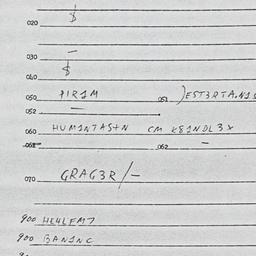 020 $
030 —
040 $
050 PIR1M 051 )EST3RTA.N1S
052 —
060 HUM1NTAS+N CM K81NDL3X
062 —
070 GRAG3R/-
900 HE4LFM7
900 BAN1NC